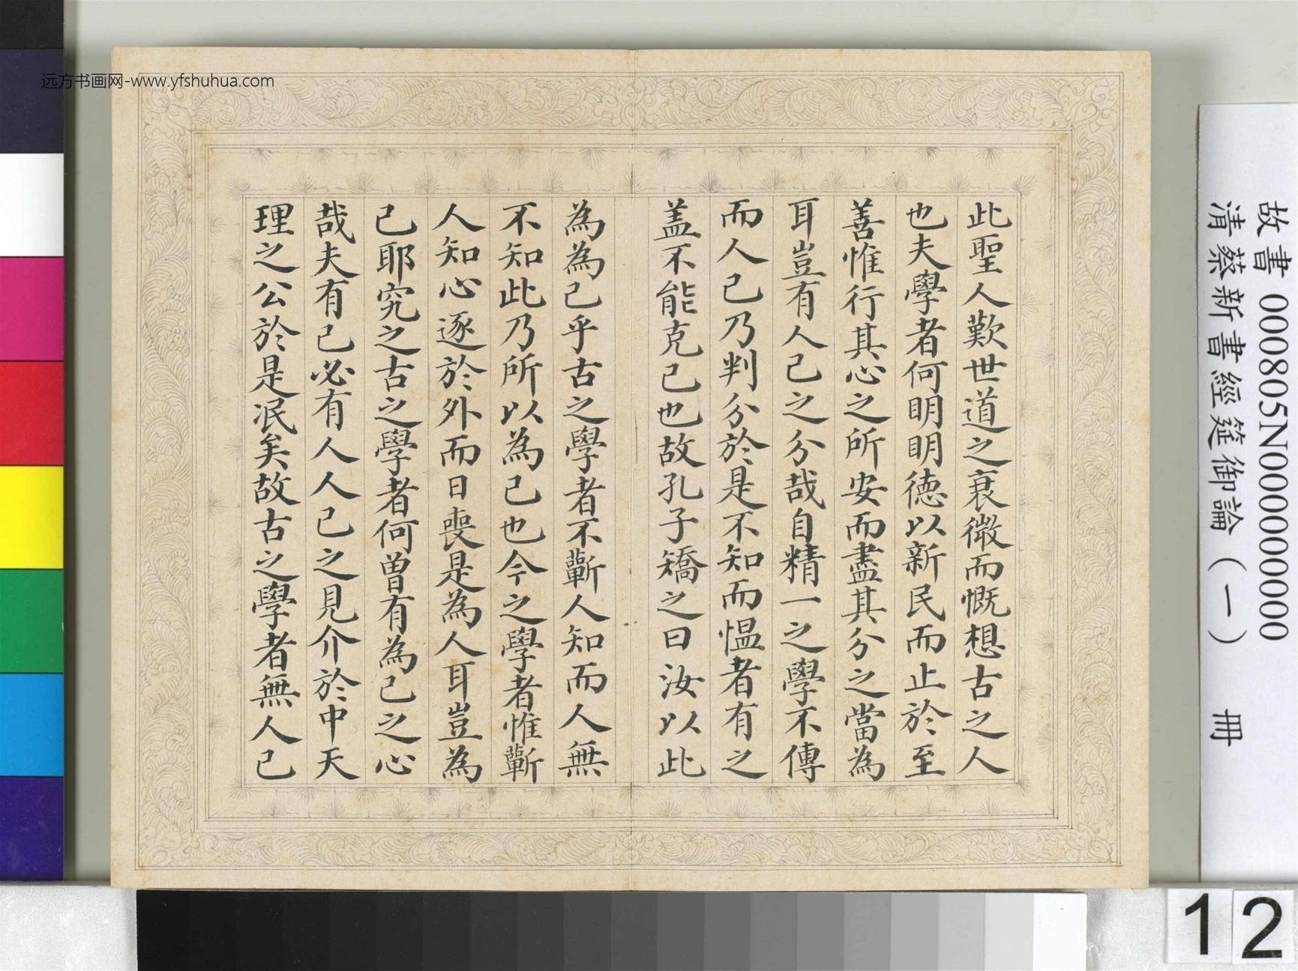 此聖人歎世道之衰微而慨想古之人
也夫學者何明明德以新民而止於至
善惟行其心之所安而盡其分之當為
耳豈有人己之分哉自精一之學不傳
而人己乃判分於是不知而愠者有之
盖不能克己也故孔子矯之曰汝以此
為為己乎古之學者不蘄人知而人無
不知此乃所以為己也今之學者惟蘄
人知心逐於外而日喪是為人耳豈為
己耶究之古之學者何曾有為己之心
哉夫有己必有人人己之見介於中天
理之公於是泯矣故古之學者無人己
远方书画网-www.yfshuhua.com
故書 000805N000000000
清蔡新書經筵御論(一) 冊
12